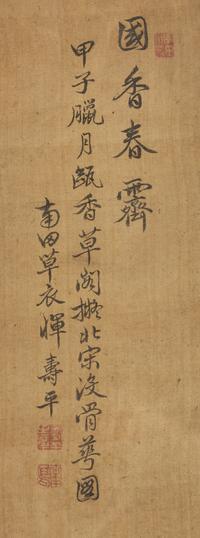 國香春霽
甲子臘月甌香草閣擬北宋没骨華圖
南田草衣惲壽平